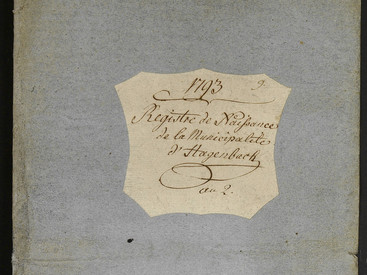 1793 9.
Registre de Naissance
de la Municipalité
d'Hagenbach
an 2.